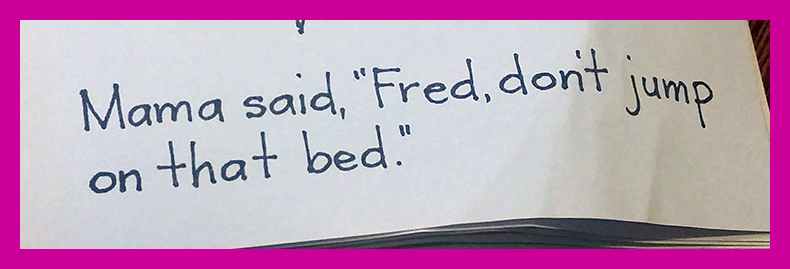 Mama said, "Fred, don't jump
on that bed."